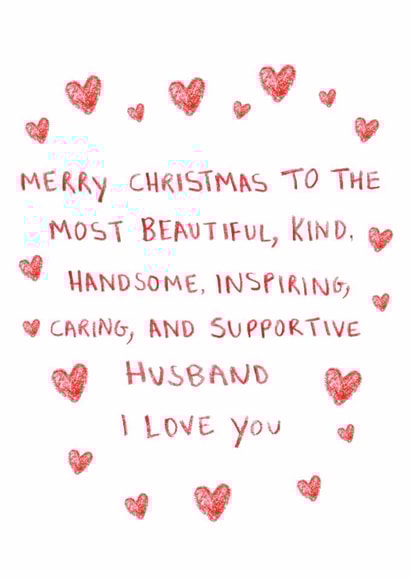 MERRY CHRISTMAS TO THE
MOST BEAUTIFUL, KIND,
HANDSOME, INSPIRING,
CARING, AND SUPPORTIVE
HUSBAND
I LOVE YOU